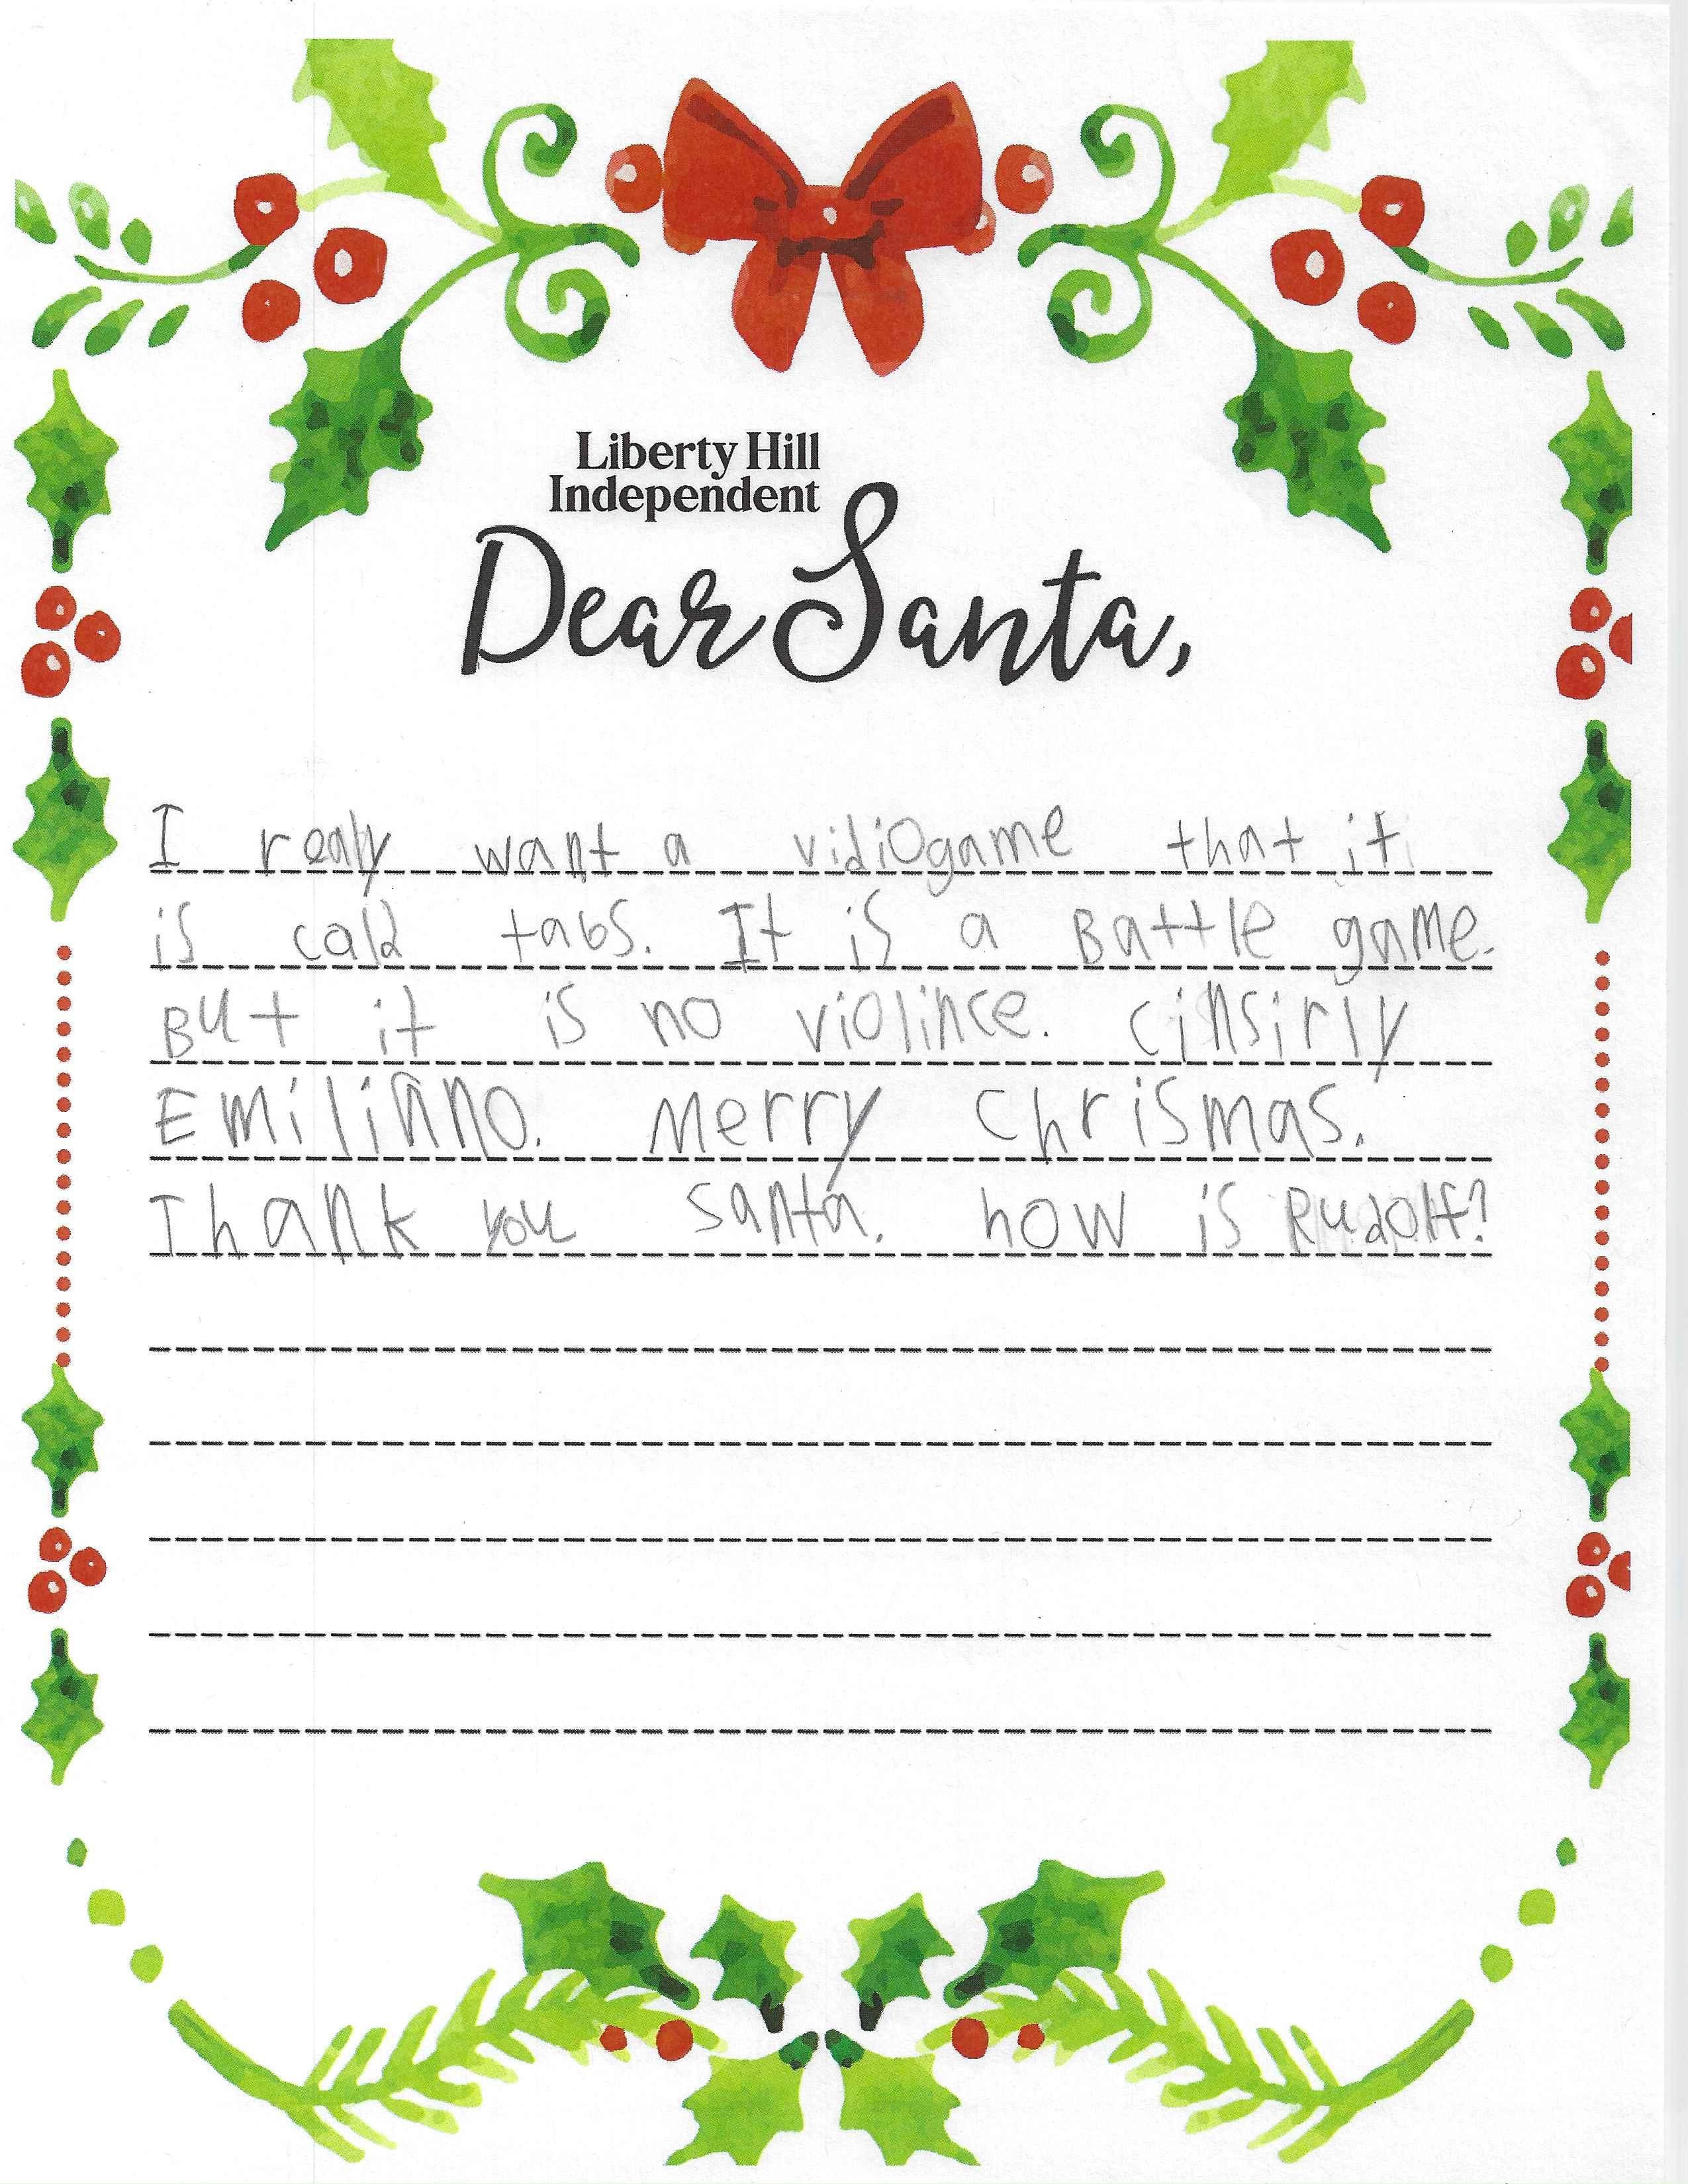 Liberty Hill
Independent
Dear Santa,
I realy want a vidiogame that it
is cald tabs. It is a Battle game.
But it is no violince. cinsirly
Emiliano. Merry Chrismas.
Thank you Santa. how is Rudolf?